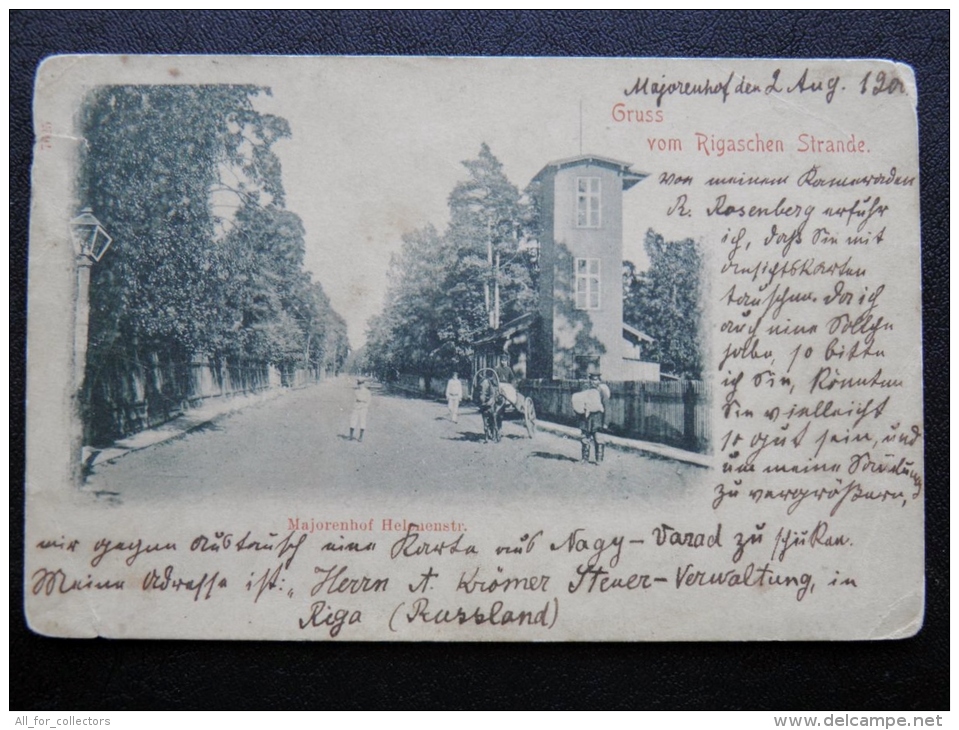 Majorenhof den 2 Aug. 190
Gruss
vom Rigaschen Strande.
7625
Von meinem Kameraden
R. Rosenberg erfuhr
ich, daß Sie mit
Ansichtskarten
tauschen. Da ich
auch eine Solche
habe, so bitte
ich Sie, könnten
Sie vielleicht
so gut sein, und
um meine
zu vergrößern,
Majorenhof Helenenstr.
mir gegen Austausch eine Karte aus Nagy-Varad zu schicken.
Meine Adresse ist: „Herrn A. Krömer Steuer-Verwaltung, in
Riga (Russland)
All_for_collectors
www.delcampe.net